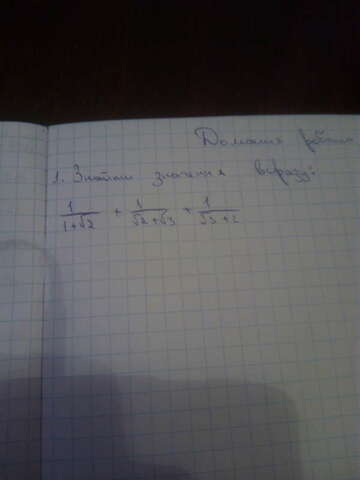 Домашня робота
1. Знайти значення виразу:
1/(1+√2) + 1/(√2+√3) + 1/(√3+2)